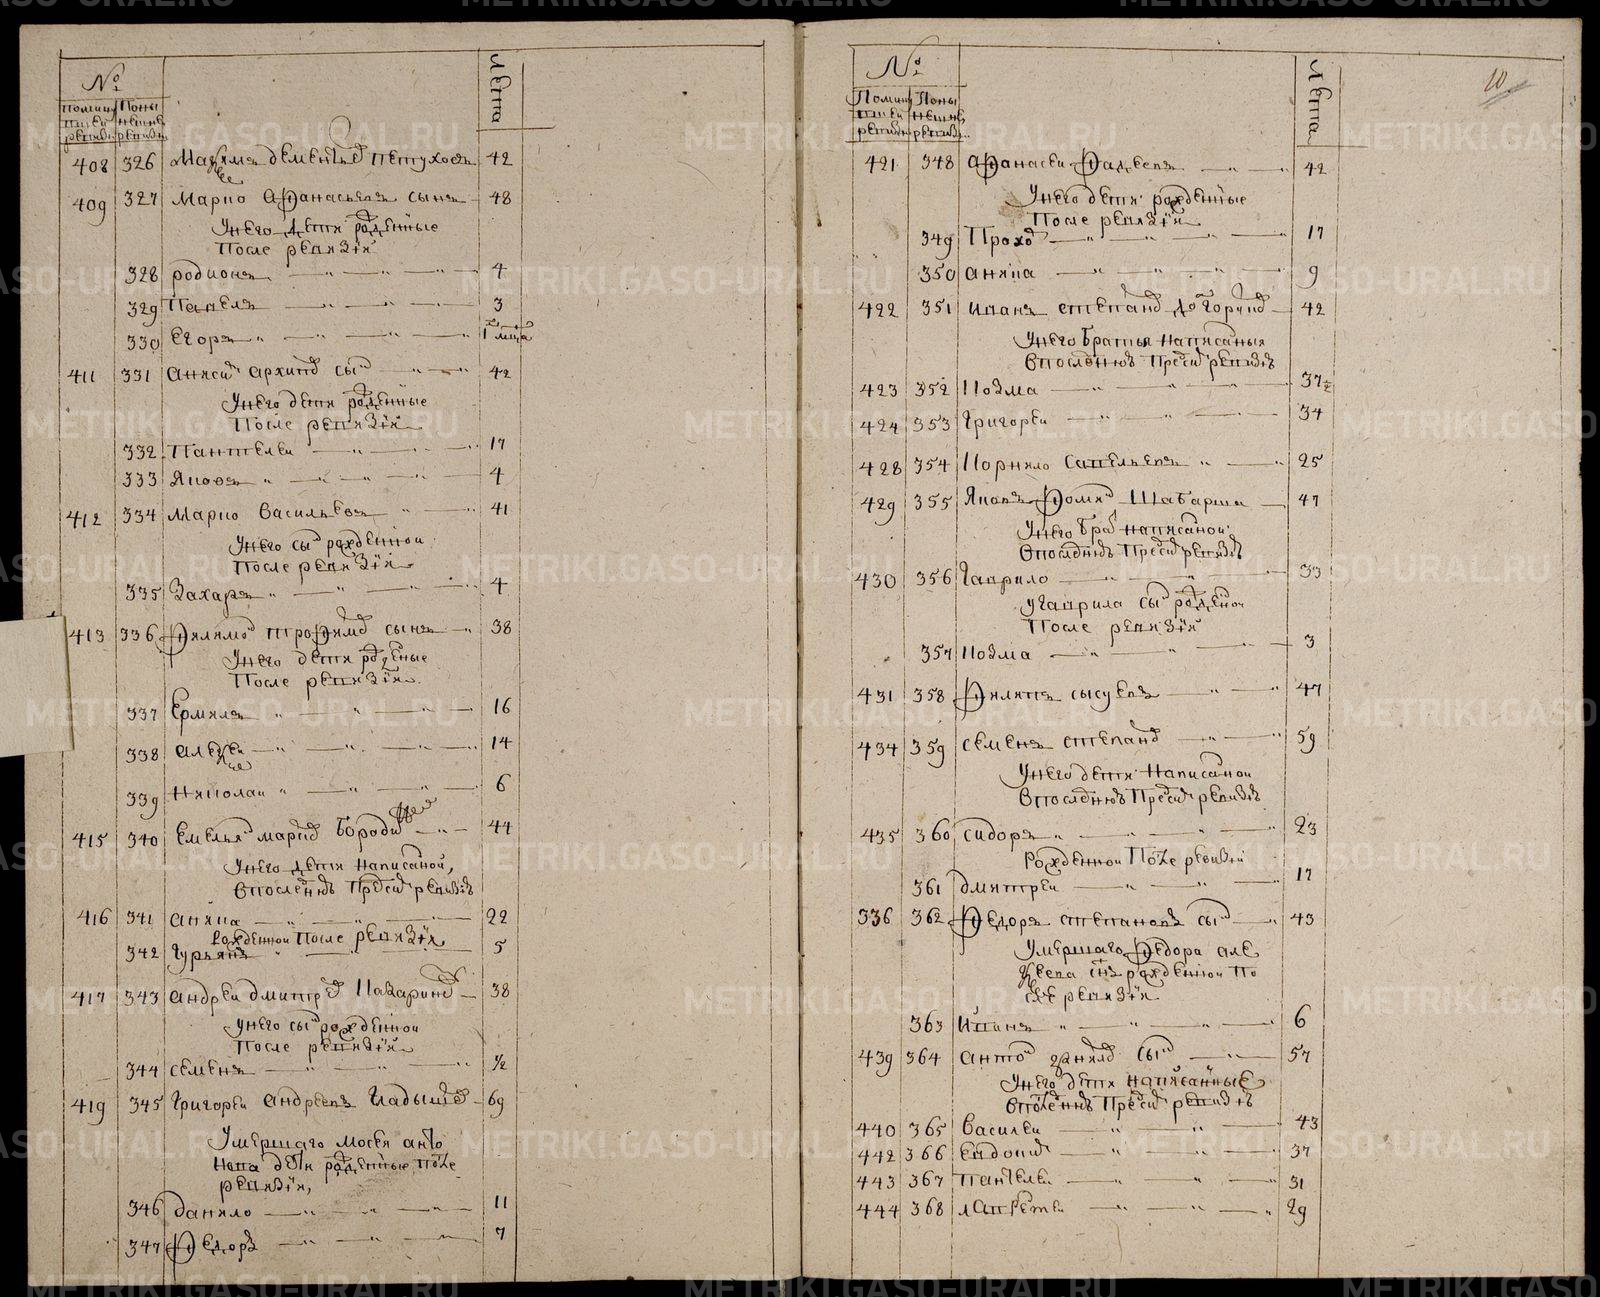 №
лета
408 326 Мазямъ дементьев петуховъ 42
409 327 Марко афанасьевъ сынъ 48
Унего дети рожденные
После ревизiи
328 родионъ 4
329 Павелъ 3
330 Егоръ 1 мца
411 331 анисим архипов сын 42
Унего дети рожденные
После ревизiи
332 Пантелеи 17
333 Яковъ 4
412 334 Марко Васильевъ 41
Унего сын рожденнои
После ревизiи
335 Захаръ 4
413 336 Филимон трофимов сынъ 38
Унего дети рожденые
После ревизiи
337 Ермилъ 16
338 алексеи 14
339 Николаи 6
415 340 Емельян марков Бородин 44
Унего дети написанои,
Впоследнюю Пред сим ревизiю
416 341 аника 22
Рожденнои После ревизiи
342 Гурьянъ 5
417 343 андреи дмитриев Назаринов 38
Унего сын рожденнои
После ревизiи
344 семенъ ½
419 345 Григореи андреевъ Гладышев 69
Умершаго мосея анто
нова дети рожденные после
ревизiи,
346 данило 11
347 Федоръ 7
№
лета
10
421 348 афанасеи Фадеевъ 42
Унего дети рожденные
После ревизiи
349 Прохор 17
350 аника 9
422 351 иванъ степанов долгоруков 42
Унего Братья написаныя
Впоследнюю Пред сим ревизiю
423 352 Козма 37½
424 353 Григореи 34
428 354 Корнило савельевъ 25
429 355 Яковъ Фомин Шабаршин 47
Унего Брат написанои
Впоследнюю Пред сим ревизiю
430 356 Гаврило 33
у Гаврила сын рожденои
После ревизiи
357 Козма 3
431 358 Филипъ сысуевъ 47
434 359 семенъ степанов 59
Унего дети написанои
Впоследнюю Пред сим ревизiю
435 360 сидоръ 23
Рожденнои После ревизiи
361 дмитреи 17
336 362 Федоръ степановъ сын 43
Умершаго Федора але
ксеева снъ рожденнои По
сле ревизiи
363 Иванъ 6
439 364 антон данилов сын 57
Унего дети написанные
Впоследнюю Пред сим ревизiю
440 365 Василеи 43
442 366 Евдоким 37
443 367 Пантелеи 31
444 368 лаврентеи 29
METRIKI.GASO-URAL.RU